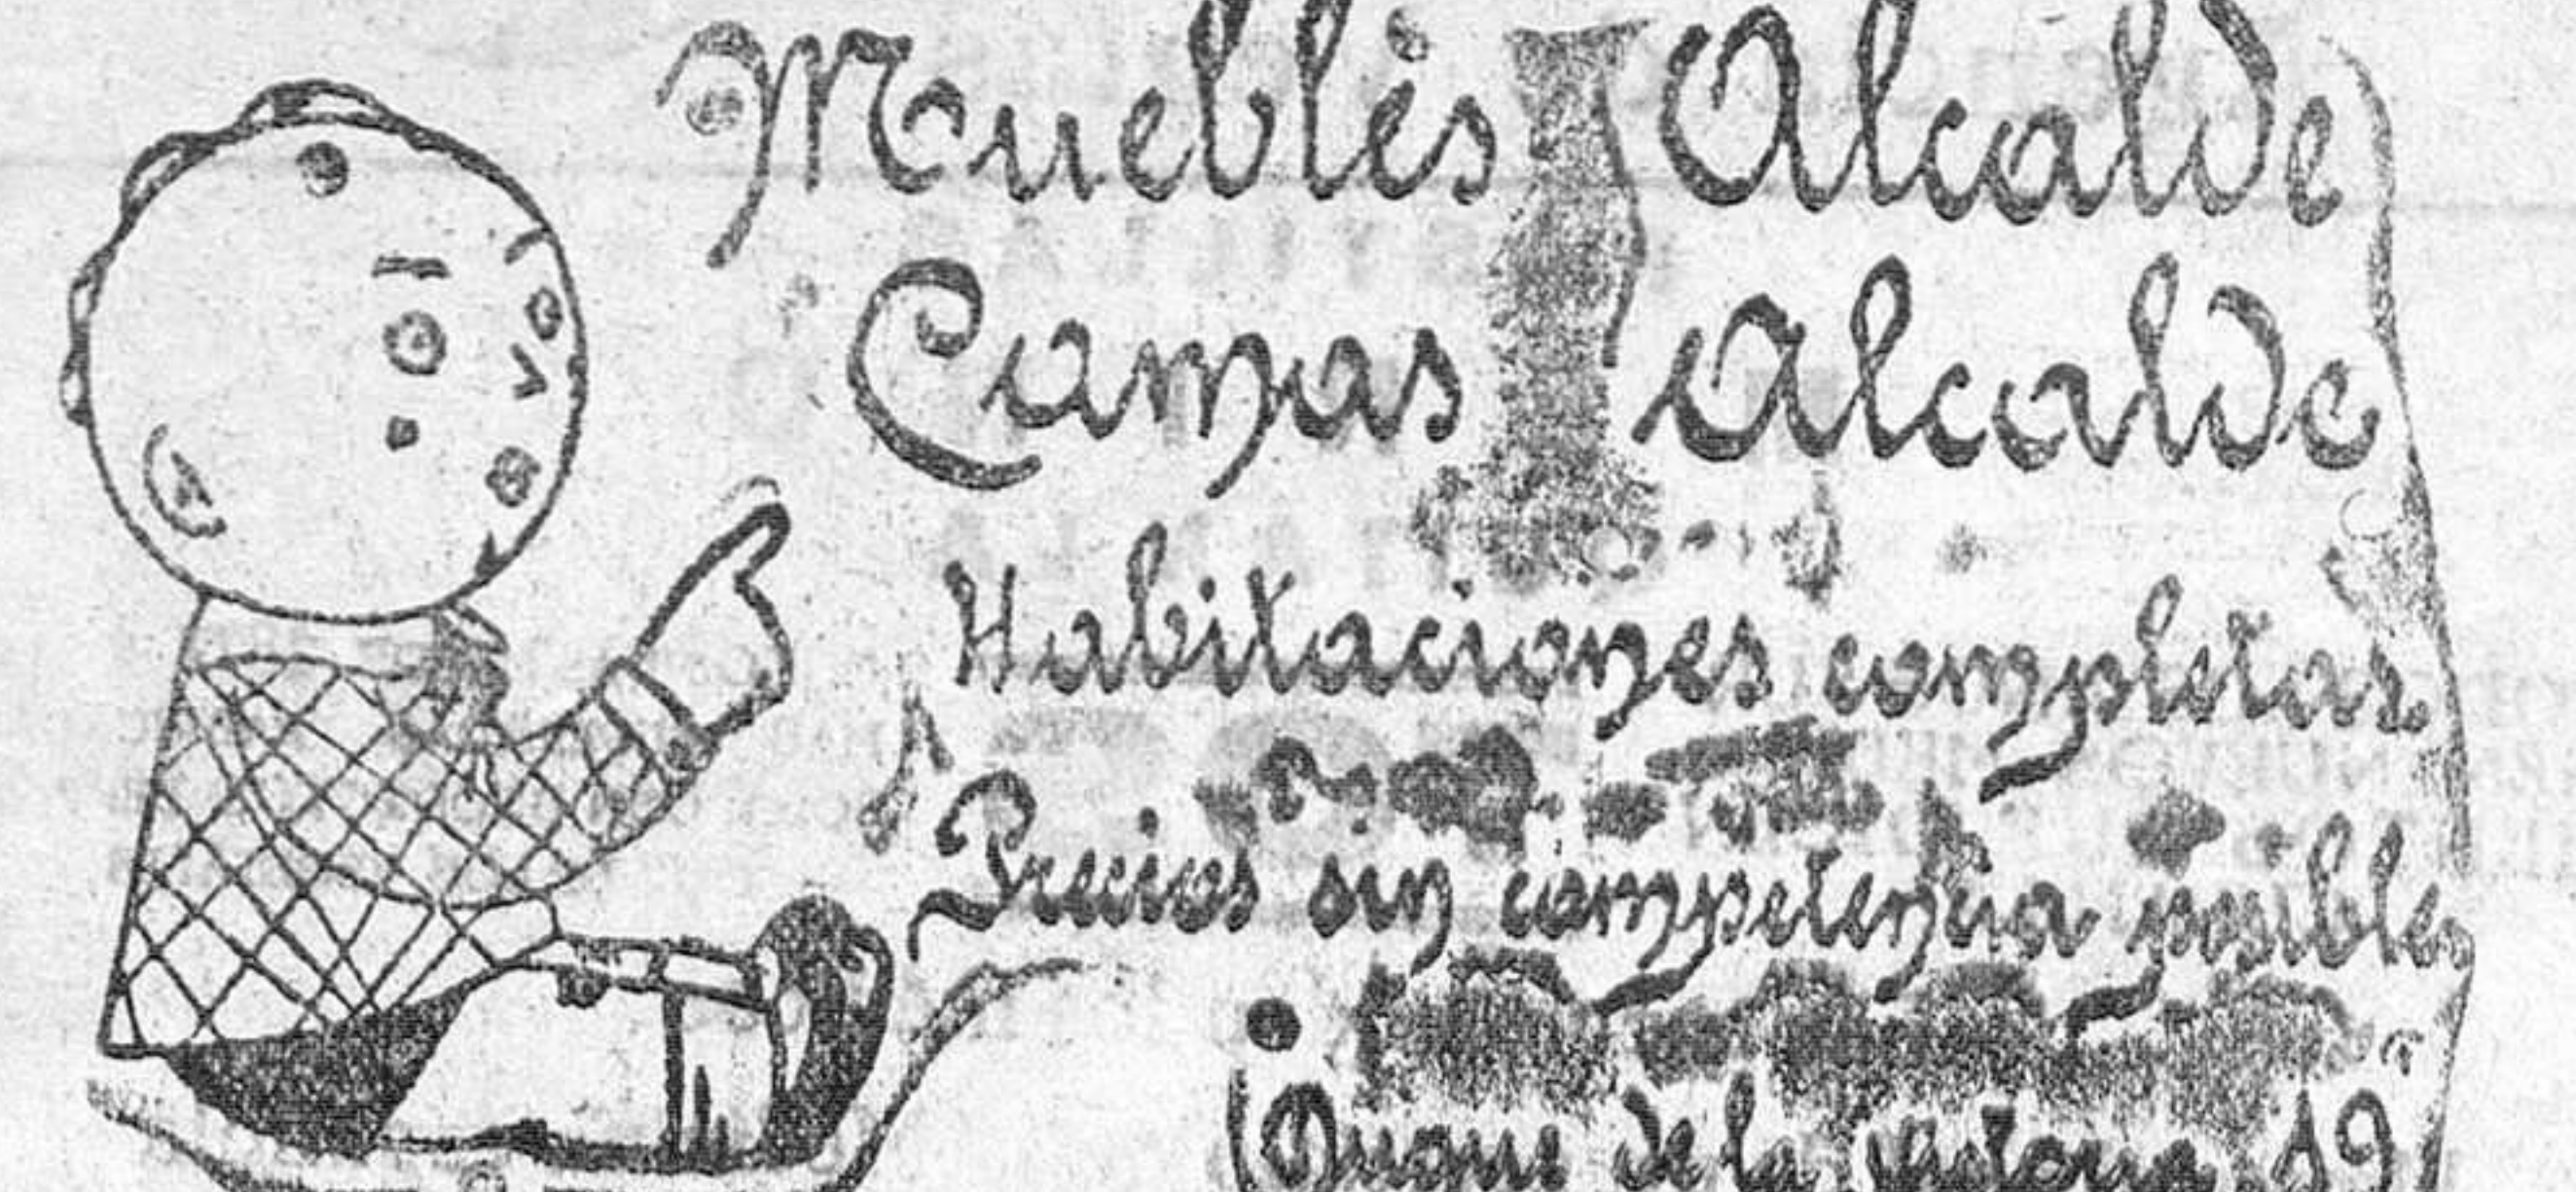 Muebles Alcalde
Camas Alcalde
Habitaciones completas
Precios sin competencia posible
Duque de la Victoria, 19